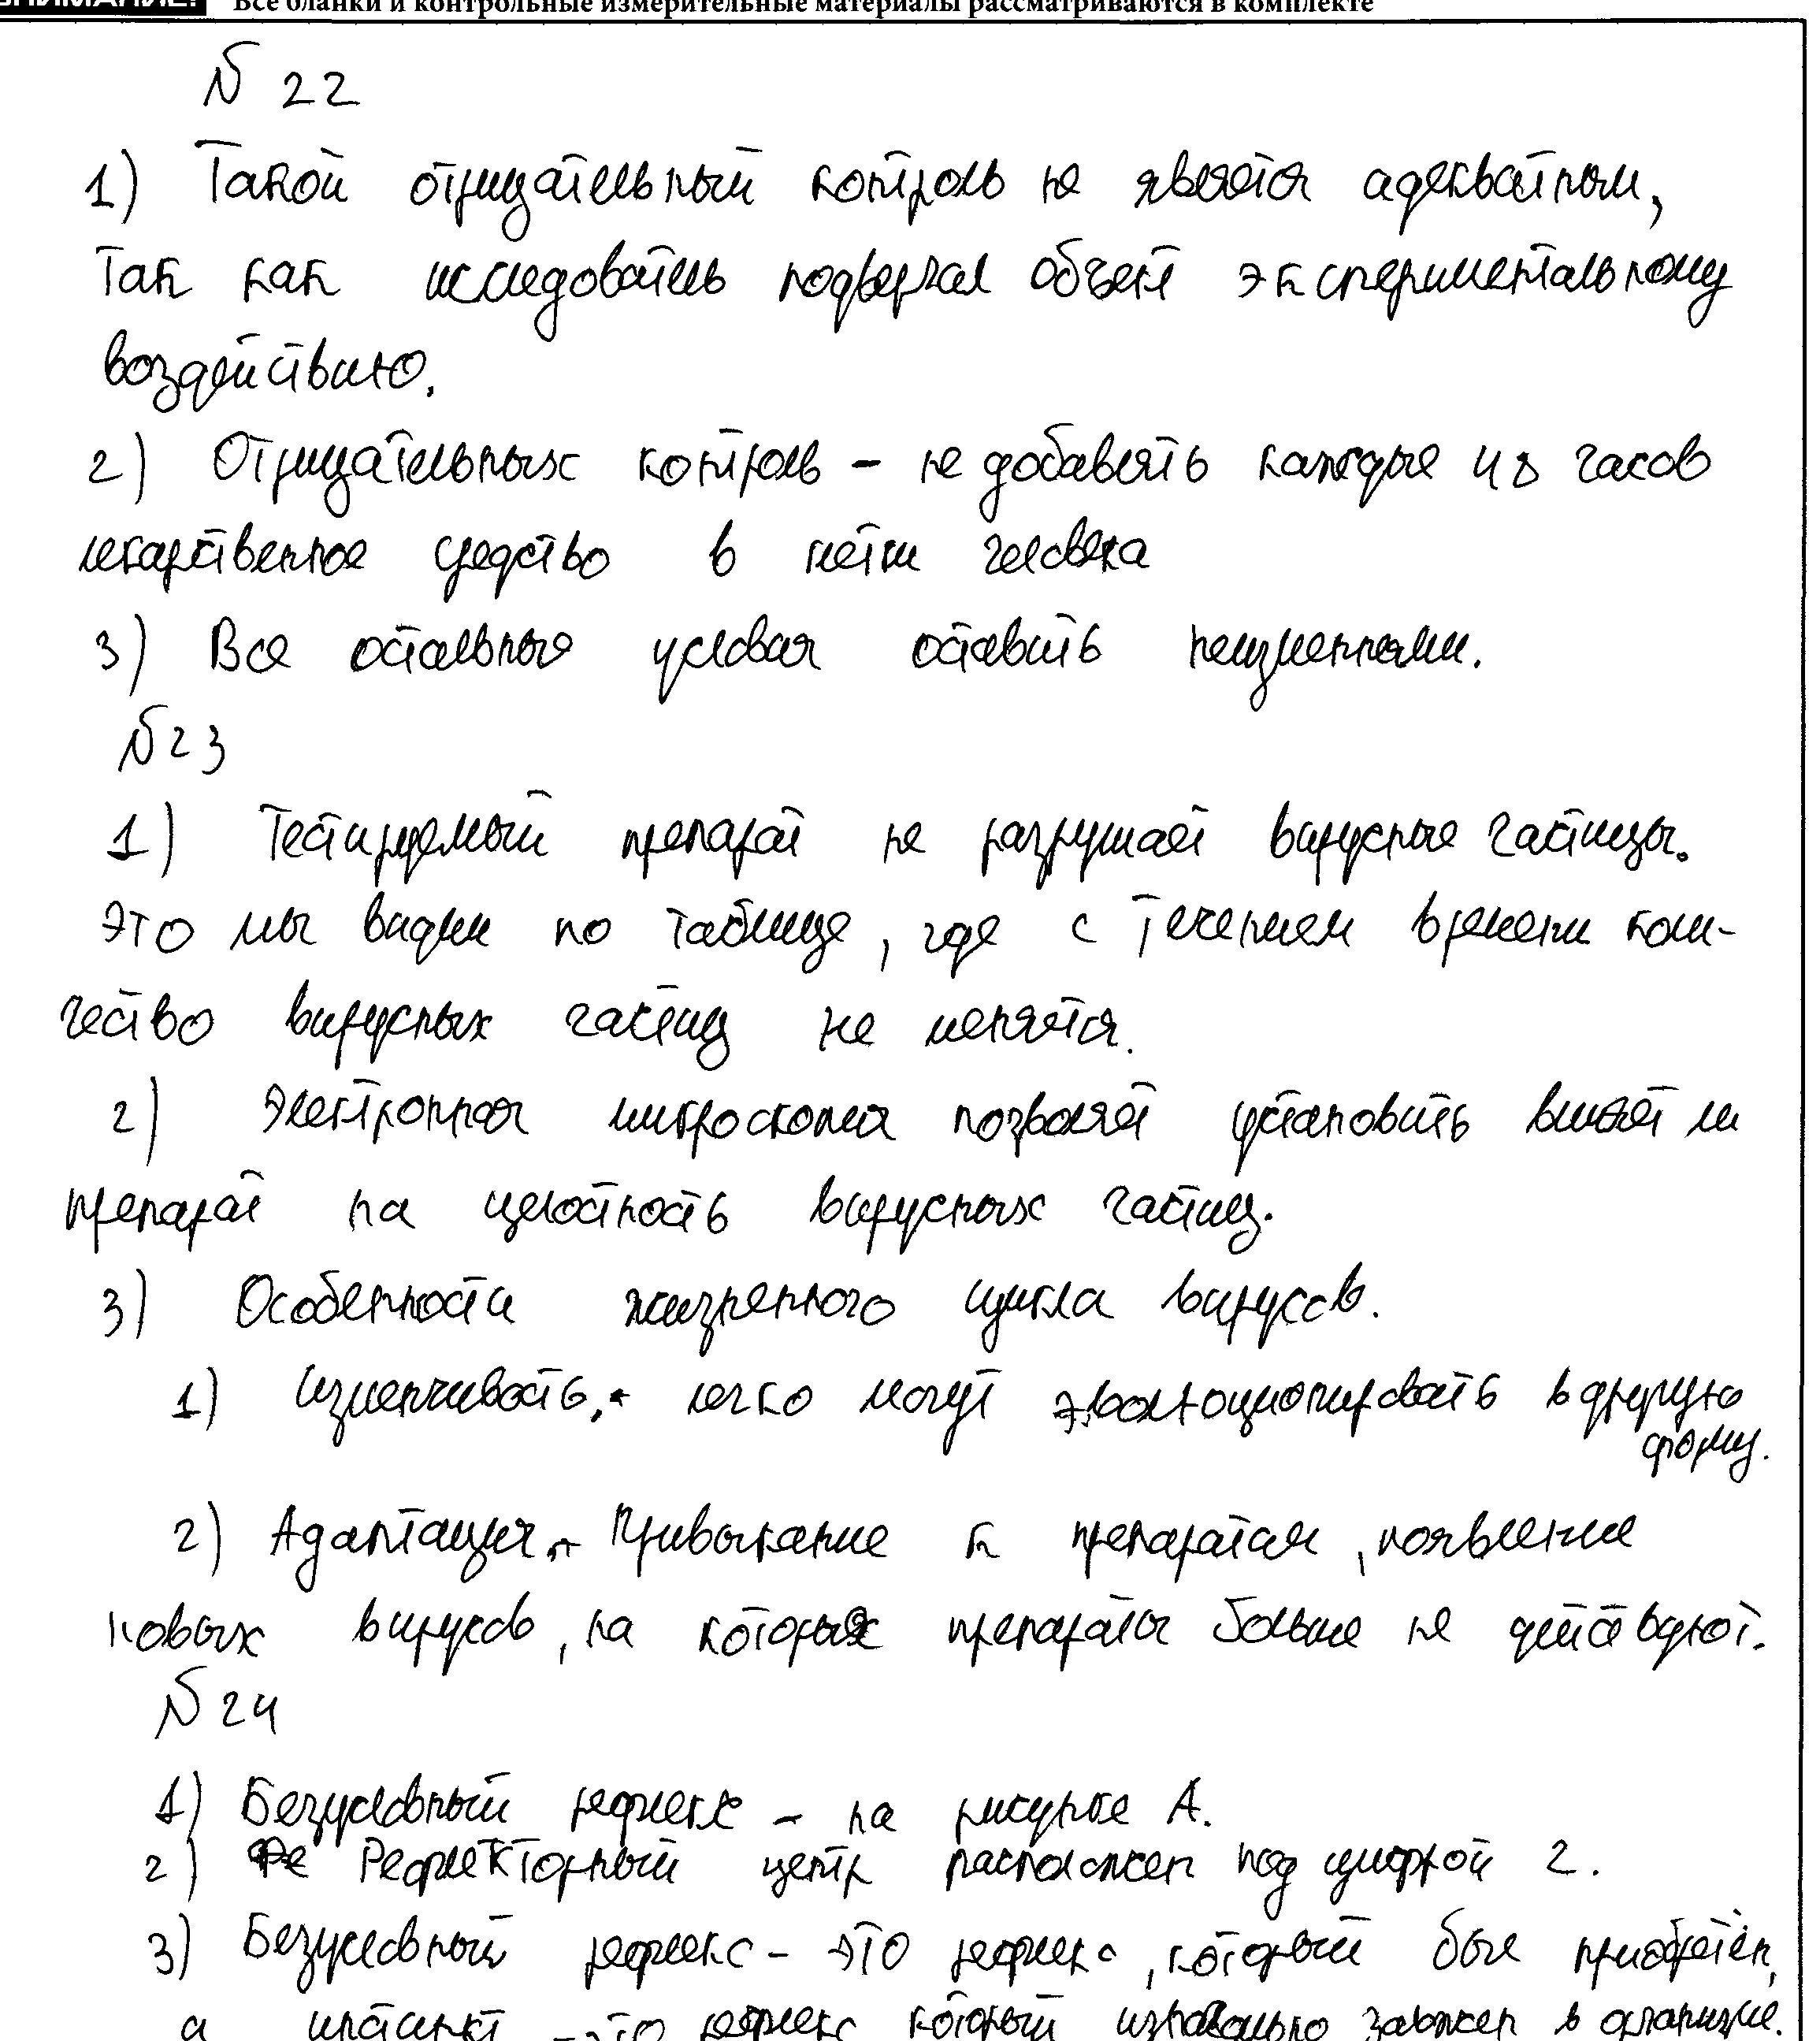 ВНИМАНИЕ! Все бланки и контрольные измерительные материалы рассматриваются в комплекте
№ 22
1) Такой отрицательный контроль не является адекватным,
так как исследователь подвергал объект экспериментальному
воздействию.
2) Отрицательных контроль - не добавлять каждые 48 часов
лекарственное средство в клетки человека
3) Все остальные условая оставить неизменными.
№23
1) Тестируемый препарат не разрушает вирусные частицы.
Это мы видим по таблице, где с течением времени коли-
чество вирусных частиц не меняется.
2) Электронная микроскопия позволяет установить влияет ли
препарат на целостность вирусных частиц.
3) Особенности жизненного цикла вирусов.
1) Изменчивость, - легко могут эволюционировать в другую
форму.
2) Адаптация. - Привыкание к препаратам, появление
новых вирусов, на которых препараты больше не действуют.
№ 24
1) Безусловный рефлекс - на рисунке А.
2) Рефлекторный центр расположен под цифрой 2.
3) Безусловный рефлекс - это рефлекс, который был приобретён,
а инстинкт - это рефлекс который изначально заложен в организме.